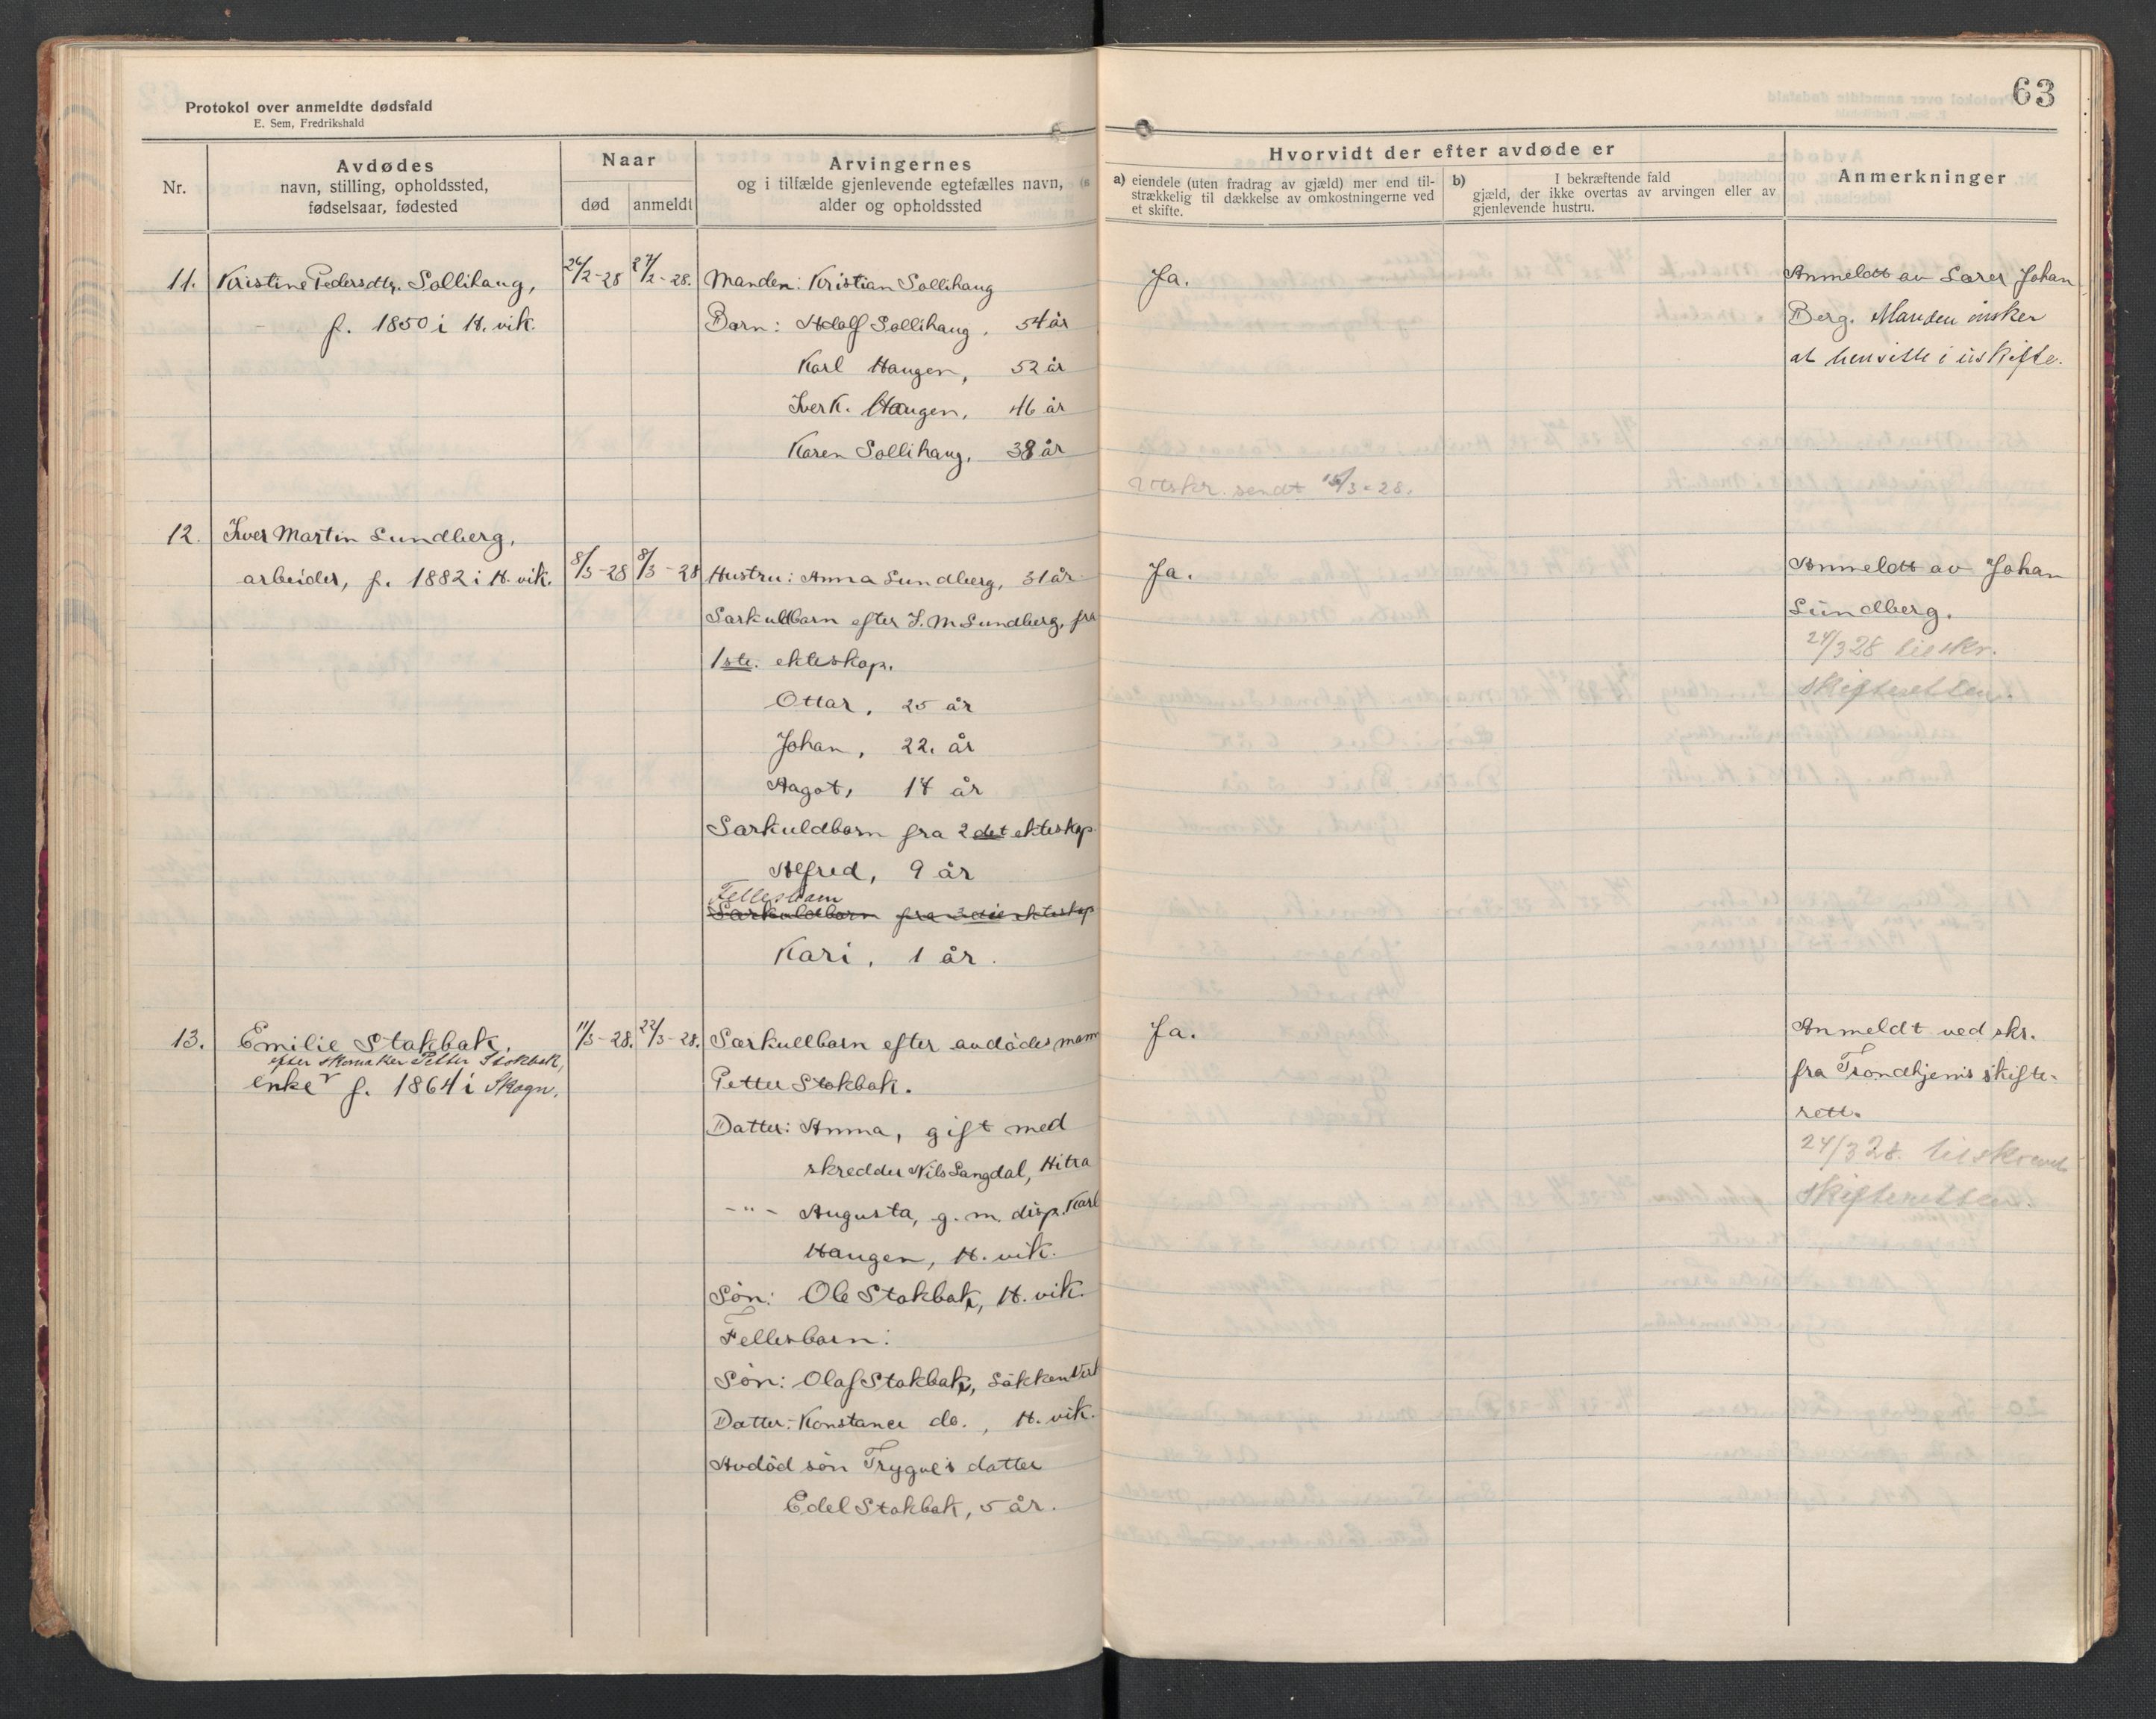 Protokol over anmeldte dødsfald
E. Sem, Fredrikshald
63
Nr.
Avdødes
navn, stilling, opholdssted,
fødselsaar, fødested
Naar
død
anmeldt
Arvingernes
og i tilfælde gjenlevende egtefælles navn,
alder og opholdssted
Hvorvidt der efter avdøde er
a) eiendele (uten fradrag av gjæld) mer end til-
strækkelig til dækkelse av omkostningerne ved
et skifte.
b) I bekræftende fald
gjæld, der ikke overtas av arvingen eller av
gjenlevende hustru.
Anmerkninger
11. Kristine Pedersdtr. Sollihaug,
f. 1850 i H.vik.
26/2-28 27/2-28.
Manden: Kristian Sollihaug
Barn: Adolf Sollihaug, 54 år
Karl Haugen, 52 år
Iver K. Haugen, 46 år
Karen Sollihaug, 38 år
Ja.
Utskr. sendt 15/3-28.
Anmeldt av Lærer Johan
Berg. Manden ønsker
at hensitte i uskifte.
12. Iver Martin Sundberg,
arbeider, f. 1882 i H.vik.
8/3-28 8/3-28
Hustru: Anna Sundberg, 31 år
Særkuldbarn efter I. M Sundberg, fra
1ste. ekteskap.
Ottar, 25 år
Johan, 22. år
Aagot, 14 år
Særkuldbarn fra 2det ekteskap
Alfred, 9 år
Fellesbarn
Særkuldbarn fra 3die ekteskap
Kari, 1 år.
Ja.
Anmeldt av Johan
Sundberg.
24/3 28 tilskr.
skifteretten.
13. Emilie Stokbak,
efter skomaker Petter Stokbak,
enke f. 1864 i Skogn.
11/3-28. 22/3-28.
Særkullbarn efter avdødes mann
Petter Stokbak.
Datter: Anna, gift med
skredder Nils Langdal, Hitra
-"- Augusta, g. m. disp. Karl
Haugen, H.vik.
Søn: Ole Stokbak, H.vik.
Fellesbarn:
Søn: Olaf Stokbak,
Datter: Konstance do., H.vik.
Avdød søn Trygve's datter
Edel Stokbak, 5 år.
Ja.
Anmeldt ved skr.
fra Trondhjems skifte-
rett.
24/3 28. tilskrevet
skifteretten.